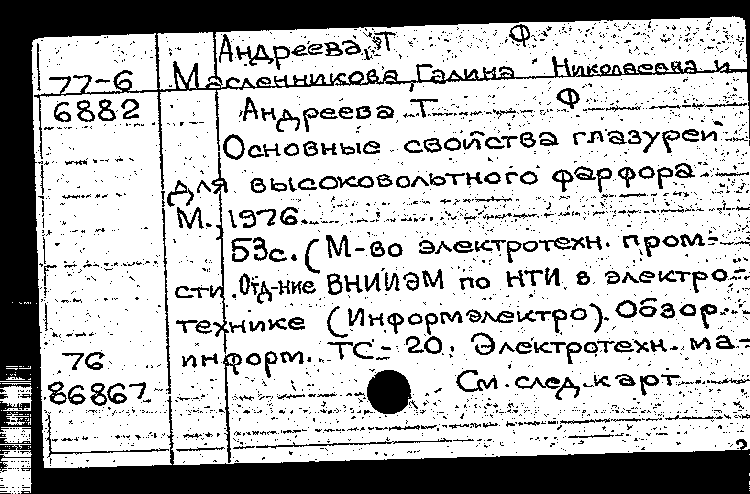 Андреева, Т Ф
77-6 Масленникова, Галина Николаевна и
6882 Андреева Т Ф
Основные свойства глазурей
для высоковольтного фарфора
М., 1976.
53с. (М-во электротехн. пром-
сти. Отд-ние ВНИИЭМ по НТИ в электро-
технике (Информэлектро). Обзор.
76 информ. ТС-20. Электротехн. ма-
86867 См. след. карт